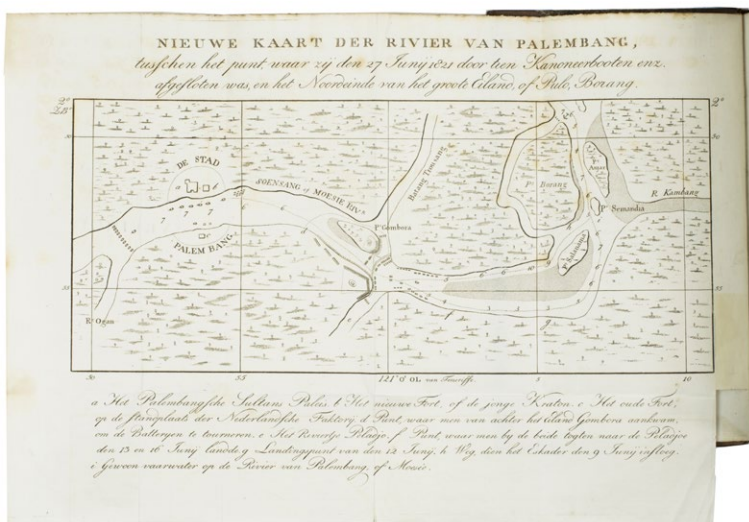 NIEUWE KAART DER RIVIER VAN PALEMBANG,
tusschen het punt, waar zij den 27 Junij 1821 door tien Kanoneerbooten enz.
afgesloten was, en het Noordeinde van het groote Eiland, of Pulo, Borang.
2°
ZB
50
55
2°
50
55
DE STAD
PALEMBANG
SOENSANG of MOESIE RIVR
Batang Toensang
Po Gombora
Po Borang
R. Kambang
Po Semandia
Rr Ogan
50
55
121° 0' OL. van Teneriffe
5
10
a Het Palembangsche Sultans Paleis. b Het nieuwe Fort, of de jonge Kraton. c Het oude Fort,
op de standplaats der Nederlandsche Faktory. d Punt, waar men van achter het Eiland Gombora aankwam,
om de Batteryen te tourneren. e Het Riviertje Peladjo. f Punt, waar men by de beide togten naar de Peladjoe
den 15 en 16 Juny landde. g Landingspunt van den 12 Junij. h Weg, dien het Eskader den 9 Juny insloeg.
i Gewoon vaarwater op de Rivier van Palembang, of Moesie.